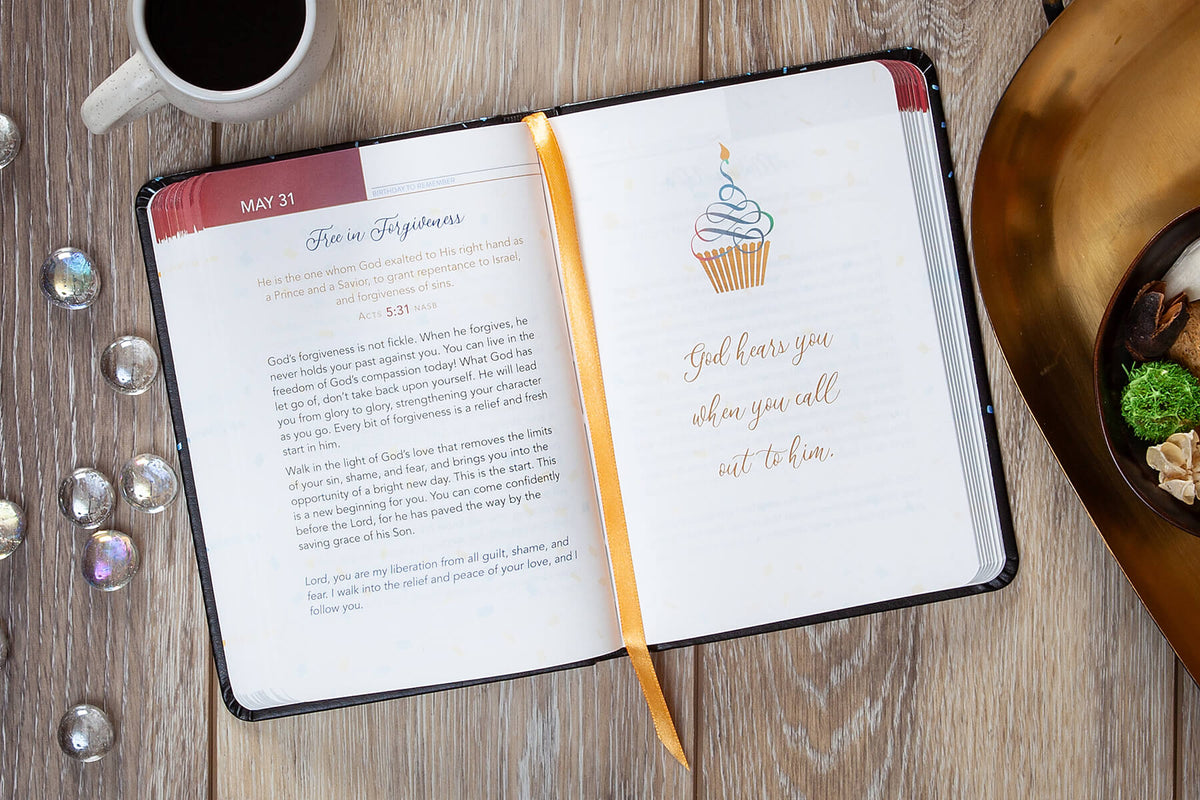 MAY 31
BIRTHDAY TO REMEMBER
Free in Forgiveness
He is the one whom God exalted to His right hand as
a Prince and a Savior, to grant repentance to Israel,
and forgiveness of sins.
ACTS 5:31 NASB
God's forgiveness is not fickle. When he forgives, he
never holds your past against you. You can live in the
freedom of God's compassion today! What God has
let go of, don't take back upon yourself. He will lead
you from glory to glory, strengthening your character
as you go. Every bit of forgiveness is a relief and fresh
start in him.
Walk in the light of God's love that removes the limits
of your sin, shame, and fear, and brings you into the
opportunity of a bright new day. This is the start. This
is a new beginning for you. You can come confidently
before the Lord, for he has paved the way by the
saving grace of his Son.
Lord, you are my liberation from all guilt, shame, and
fear. I walk into the relief and peace of your love, and I
follow you.
God hears you
when you call
out to him.